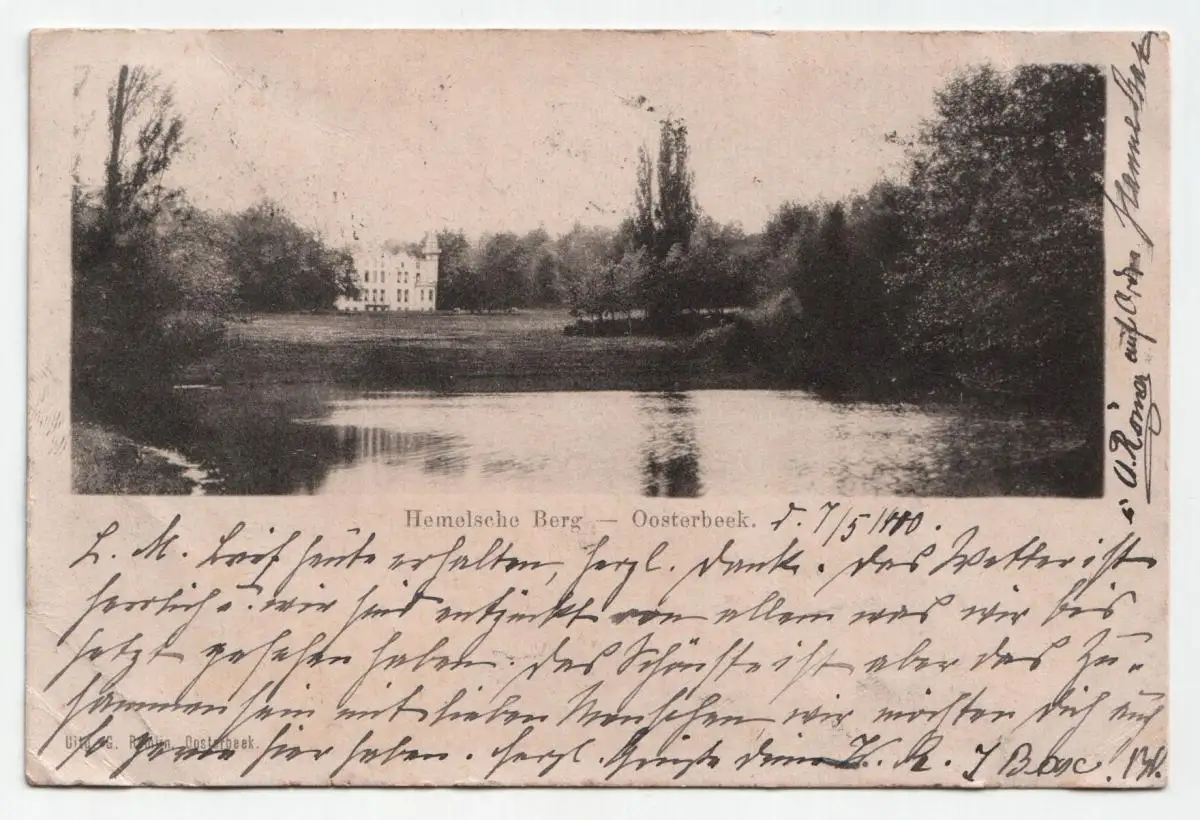 Hemelsche Berg — Oosterbeek. d. 7/5 1900.
L. M. Brief heute erhalten, herzl. Dank. Das Wetter ist
herrlich u. wir sind entzückt von allem was wir bis
jetzt gesehen haben. Das Schönste ist aber das Zu-
sammensein mit lieben Menschen, wir möchten Dich auch
so gerne hier haben. Herzl. Grüße Deine
Uitg. G. Romijn, Oosterbeek.
auf